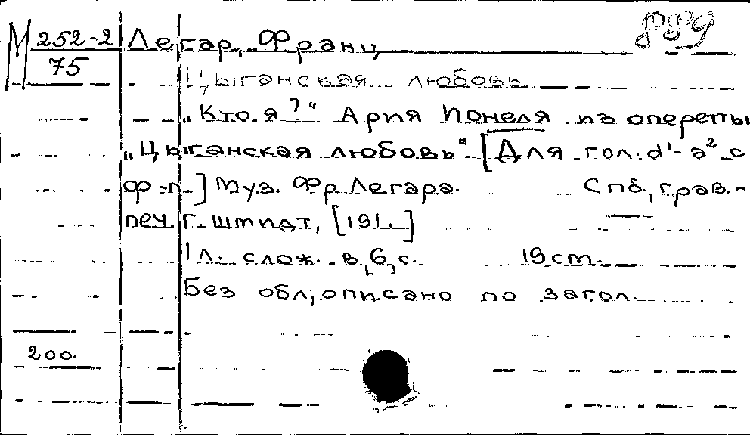 М 252-2
75
Легар, Франц
Цыганская любовь
„Кто я?“ Ария Ионеля из оперетты
„Цыганская любовь“ [Для гол. d¹-a² с
ф-п.] Муз. Фр. Легара. Спб, грав.-
печ. Г. Шмидт, [191.]
1 л. слож. в 6 с. 19 cm.
Без обл., описано по загол.
200.